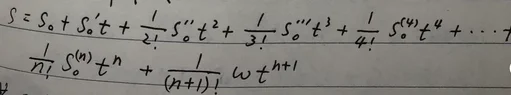 S = S₀ + S₀′t + 1/2! S₀″t² + 1/3! S₀‴t³ + 1/4! S₀⁽⁴⁾t⁴ + ⋯ +
1/n! S₀⁽ⁿ⁾tⁿ + 1/(n+1)! ωtⁿ⁺¹